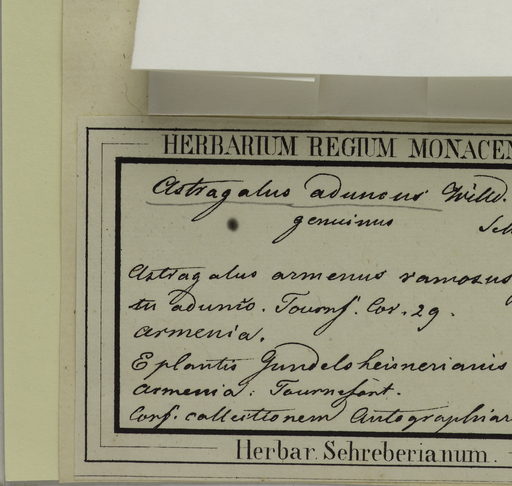 HERBARIUM REGIUM MONACEN
Astragalus aduncus Willd.
genuinus
Astragalus armenus ramosus
tu adunco. Tournf. Cor. 29.
Armenia.
E plantis Gundelsheimerianis
Armenia. Tournefort.
Conf. collectionem Autographiar
Herbar. Schreberianum.